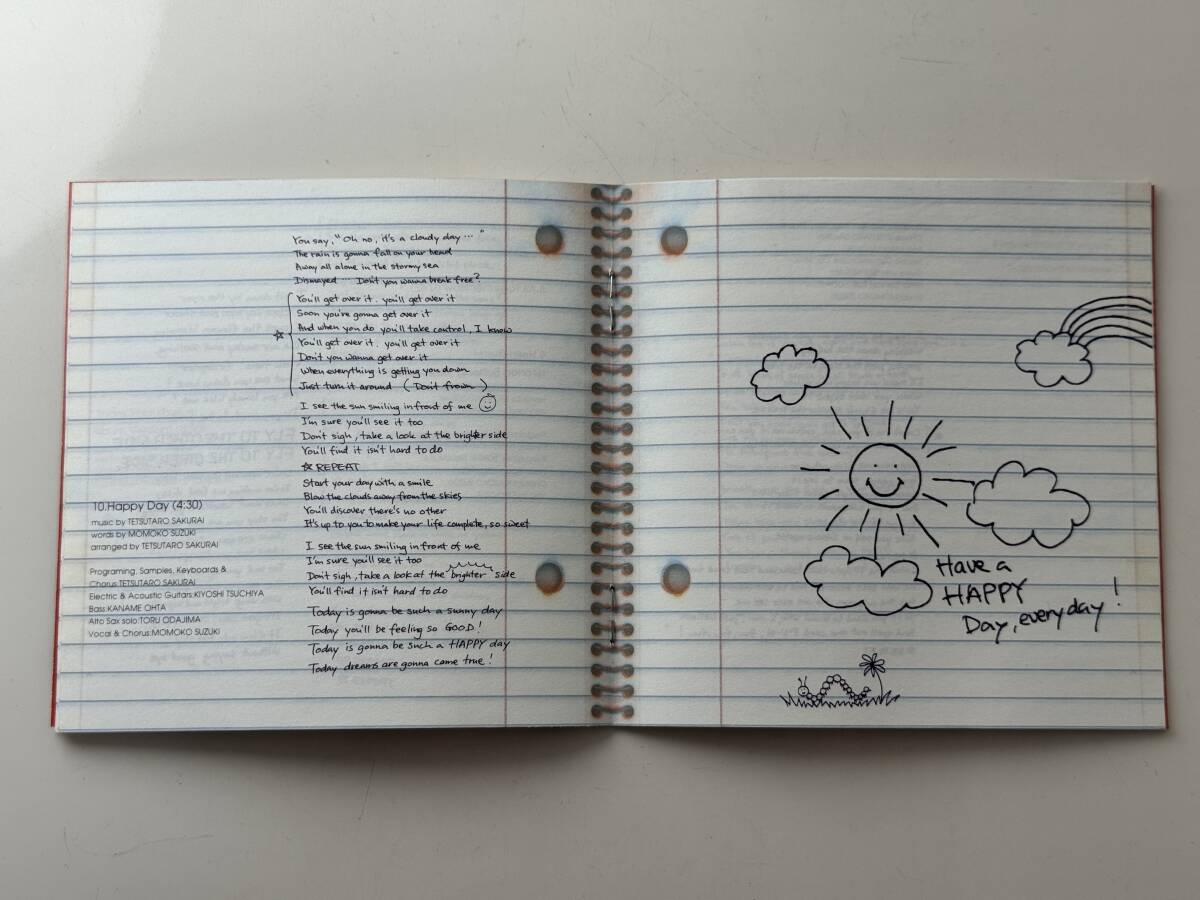 You say, "Oh no, it's a cloudy day ... "
The rain is gonna fall on your head
Away all alone in the stormy sea
Dismayed ... Don't you wanna break free?
You'll get over it. you'll get over it
Soon you're gonna get over it
☆ And when you do you'll take control, I know
You'll get over it. you'll get over it
Don't you wanna get over it
When everything is getting you down
Just turn it around (Don't frown)
I see the sun smiling in front of me
I'm sure you'll see it too
Don't sigh, take a look at the brighter side
You'll find it isn't hard to do
☆ REPEAT
Start your day with a smile
Blow the clouds away from the skies
You'll discover there's no other
It's up to you to make your life complete, so sweet
I see the sun smiling in front of me
I'm sure you'll see it too
Don't sigh, take a look at the brighter side
You'll find it isn't hard to do
Today is gonna be such a sunny day
Today you'll be feeling so GOOD!
Today is gonna be such a HAPPY day
Today dreams are gonna come true!
10.Happy Day (4:30)
music by TETSUTARO SAKURAI
words by MOMOKO SUZUKI
arranged by TETSUTARO SAKURAI
Programing, Samples, Keyboards &
Chorus:TETSUTARO SAKURAI
Electric & Acoustic Guitars:KIYOSHI TSUCHIYA
Bass:KANAME OHTA
Alto Sax solo:TORU ODAJIMA
Vocal & Chorus:MOMOKO SUZUKI
Have a
HAPPY
Day, everyday!